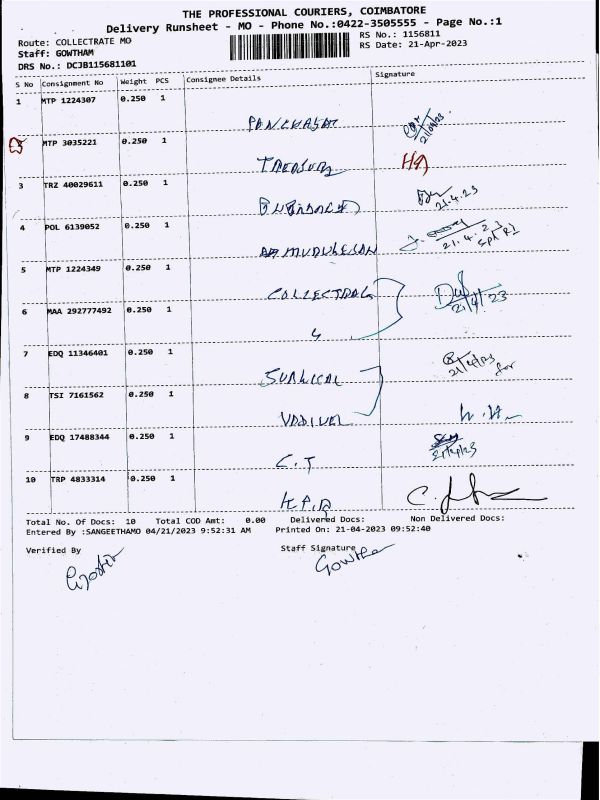 THE PROFESSIONAL COURIERS, COIMBATORE
Delivery Runsheet - MO - Phone No.:0422-3505555 - Page No.:1
Route: COLLECTRATE MO
RS No.: 1156811
Staff: GOWTHAM
RS Date: 21-Apr-2023
DRS No.: DCJB115681101
S No Consignment No Weight PCS Consignee Details Signature
1 MTP 1224307 0.250 1
PANCHAYAT 21/04/23
MTP 3035221 0.250 1
TREASURY
3 TRZ 40029611 0.250 1
21.4.23
4 POL 6139052 0.250 1
21.4.23
5 MTP 1224349 0.250 1
21/4/23
6 MAA 292777492 0.250 1
4
7 EDQ 11346401 0.250 1
SURGICAL 21/4/23 for
8 TSI 7161562 0.250 1
VADIVEL
9 EDQ 17488344 0.250 1
C.T 21/4/23
10 TRP 4833314 0.250 1
Total No. Of Docs: 10 Total COD Amt: 0.00 Delivered Docs: Non Delivered Docs:
Entered By :SANGEETHAMO 04/21/2023 9:52:31 AM Printed On: 21-04-2023 09:52:40
Verified By Staff Signature
Gowtham